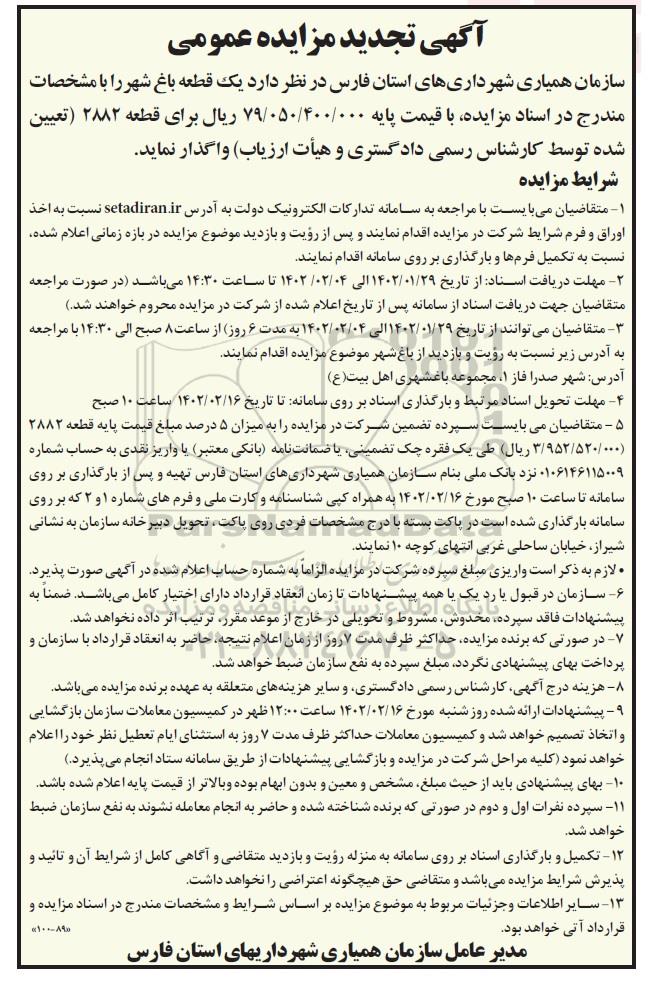 آگهی تجدید مزایده عمومی
سازمان همیاری شهرداری‌های استان فارس در نظر دارد یک قطعه باغ شهر را با مشخصات
مندرج در اسناد مزایده، با قیمت پایه ۷۹/۰۵۰/۴۰۰/۰۰۰ ریال برای قطعه ۲۸۸۲ (تعیین
شده توسط کارشناس رسمی دادگستری و هیأت ارزیاب) واگذار نماید.
شرایط مزایده
۱- متقاضیان می‌بایست با مراجعه به سامانه تدارکات الکترونیک دولت به آدرس setadiran.ir نسبت به اخذ
اوراق و فرم شرایط شرکت در مزایده اقدام نمایند و پس از رؤیت و بازدید موضوع مزایده در بازه زمانی اعلام شده،
نسبت به تکمیل فرم‌ها و بارگذاری بر روی سامانه اقدام نمایند.
۲- مهلت دریافت اسناد: از تاریخ ۱۴۰۲/۰۱/۲۹ الی ۱۴۰۲/۰۲/۰۴ تا ساعت ۱۴:۳۰ می‌باشد (در صورت مراجعه
متقاضیان جهت دریافت اسناد از سامانه پس از تاریخ اعلام شده از شرکت در مزایده محروم خواهند شد.)
۳- متقاضیان می‌توانند از تاریخ ۱۴۰۲/۰۱/۲۹ الی ۱۴۰۲/۰۲/۰۴ به مدت ۶ روز) از ساعت ۸ صبح الی ۱۴:۳۰ با مراجعه
به آدرس زیر نسبت به رؤیت و بازدید از باغ‌شهر موضوع مزایده اقدام نمایند.
آدرس: شهر صدرا فاز ۱، مجموعه باغشهری اهل بیت(ع)
۴- مهلت تحویل اسناد مرتبط و بارگذاری اسناد بر روی سامانه: تا تاریخ ۱۴۰۲/۰۲/۱۶ ساعت ۱۰ صبح
۵ - متقاضیان می بایست سپرده تضمین شرکت در مزایده را به میزان ۵ درصد مبلغ قیمت پایه قطعه ۲۸۸۲
(۳/۹۵۲/۵۲۰/۰۰۰ ریال) طی یک فقره چک تضمینی، یا ضمانت‌نامه (بانکی معتبر) یا واریز نقدی به حساب شماره
۰۱۰۶۱۴۶۱۱۵۰۰۹ نزد بانک ملی بنام سازمان همیاری شهرداری‌های استان فارس تهیه و پس از بارگذاری بر روی
سامانه تا ساعت ۱۰ صبح مورخ ۱۴۰۲/۰۲/۱۶ به همراه کپی شناسنامه و کارت ملی و فرم های شماره ۱ و ۲ که بر روی
سامانه بارگذاری شده است در پاکت بسته با درج مشخصات فردی روی پاکت ، تحویل دبیرخانه سازمان به نشانی
شیراز، خیابان ساحلی غربی انتهای کوچه ۱۰ نمایند.
• لازم به ذکر است واریزی مبلغ سپرده شرکت در مزایده الزاماً به شماره حساب اعلام شده در آگهی صورت پذیرد.
۶- سازمان در قبول یا رد یک یا همه پیشنهادات تا زمان انعقاد قرارداد دارای اختیار کامل می‌باشد. ضمناً به
پیشنهادات فاقد سپرده، مخدوش، مشروط و تحویلی در خارج از موعد مقرر، ترتیب اثر داده نخواهد شد.
۷- در صورتی که برنده مزایده، حداکثر ظرف مدت ۷ روز از زمان اعلام نتیجه، حاضر به انعقاد قرارداد با سازمان و
پرداخت بهای پیشنهادی نگردد، مبلغ سپرده به نفع سازمان ضبط خواهد شد.
۸- هزینه درج آگهی، کارشناس رسمی دادگستری، و سایر هزینه‌های متعلقه به عهده برنده مزایده می‌باشد.
۹ - پیشنهادات ارائه شده روز شنبه مورخ ۱۴۰۲/۰۲/۱۶ ساعت ۱۲:۰۰ ظهر در کمیسیون معاملات سازمان بازگشایی
و اتخاذ تصمیم خواهد شد و کمیسیون معاملات حداکثر ظرف مدت ۷ روز به استثنای ایام تعطیل نظر خود را اعلام
خواهد نمود (کلیه مراحل شرکت در مزایده و بازگشایی پیشنهادات از طریق سامانه ستاد انجام می‌پذیرد.)
۱۰- بهای پیشنهادی باید از حیث مبلغ، مشخص و معین و بدون ابهام بوده وبالاتر از قیمت پایه اعلام شده باشد.
۱۱- سپرده نفرات اول و دوم در صورتی که برنده شناخته شده و حاضر به انجام معامله نشوند به نفع سازمان ضبط
خواهد شد.
۱۲- تکمیل و بارگذاری اسناد بر روی سامانه به منزله رؤیت و بازدید متقاضی و آگاهی کامل از شرایط آن و تائید و
پذیرش شرایط مزایده می‌باشد و متقاضی حق هیچگونه اعتراضی را نخواهد داشت.
۱۳- سایر اطلاعات وجزئیات مربوط به موضوع مزایده بر اساس شرایط و مشخصات مندرج در اسناد مزایده و
قرارداد آتی خواهد بود.
«۱۰۰-۸۹»
مدیر عامل سازمان همیاری شهرداریهای استان فارس
ParsNamadData
پایگاه اطلاع رسانی مناقصه و مزایده
۰۲۱-۸۸۳۴۹۶۷۰-۵